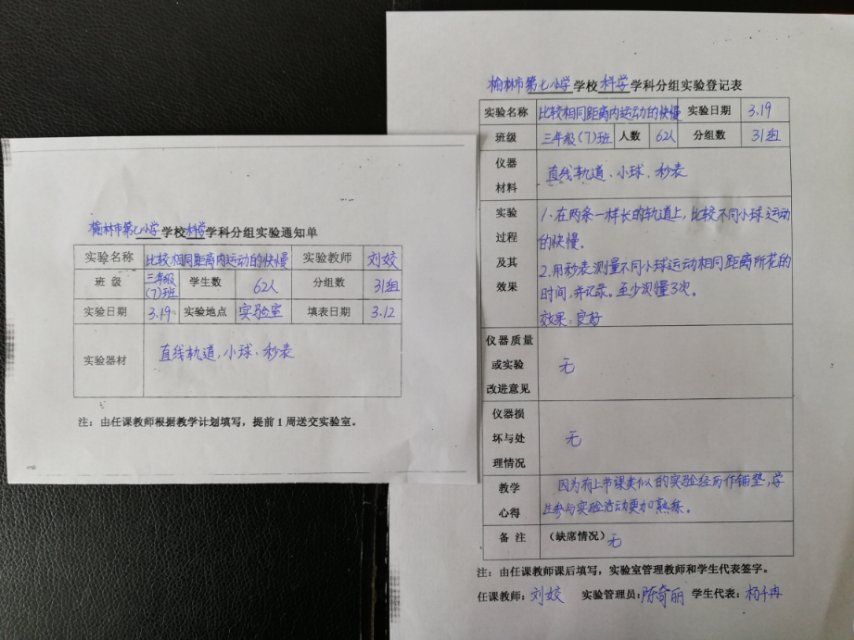 榆林市第七小学学校科学学科分组实验通知单
实验名称 比较相同距离内运动的快慢 实验教师 刘姣
班级 三年级(7)班 学生数 62人 分组数 31组
实验日期 3.19 实验地点 实验室 填表日期 3.12
实验器材 直线轨道、小球、秒表
注：由任课教师根据教学计划填写，提前1周送交实验室。
榆林市第七小学学校科学学科分组实验登记表
实验名称 比较相同距离内运动的快慢 实验日期 3.19
班级 三年级(7)班 人数 62人 分组数 31组
仪器材料 直线轨道、小球、秒表
实验过程及其效果
1、在两条一样长的轨道上，比较不同小球运动
的快慢。
2.用秒表测量不同小球运动相同距离所花的
时间，并记录。至少测量3次。
效果：良好
仪器质量或实验改进意见 无
仪器损坏与处理情况 无
教学心得 因为有上节课类似的实验经历作铺垫，学
生参与实验活动更加熟练。
备注 (缺席情况) 无
注：由任课教师课后填写，实验室管理教师和学生代表签字。
任课教师：刘姣 实验管理员：陈奇丽 学生代表：杨千冉